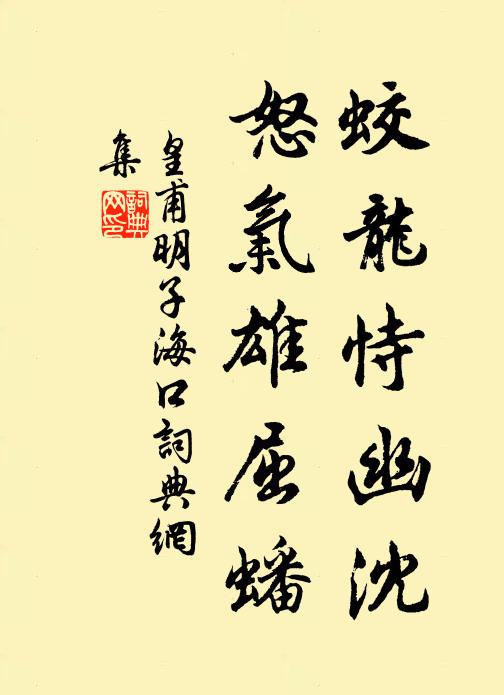 蛟龍恃幽沈
怒氣雄屈蟠
皇甫明子海口詞典網
集
詞典網印